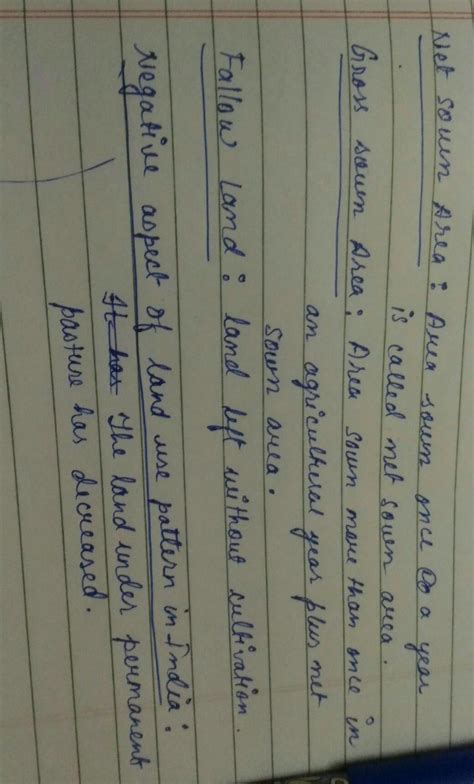 Net sown Area : Area sown once a year
is called net sown area.
Gross sown Area : Area sown more than once in
an agricultural year plus net
sown area.
Fallow Land : land left without cultivation.
Negative aspect of land use pattern in India :
It has The land under permanent
pasture has decreased.